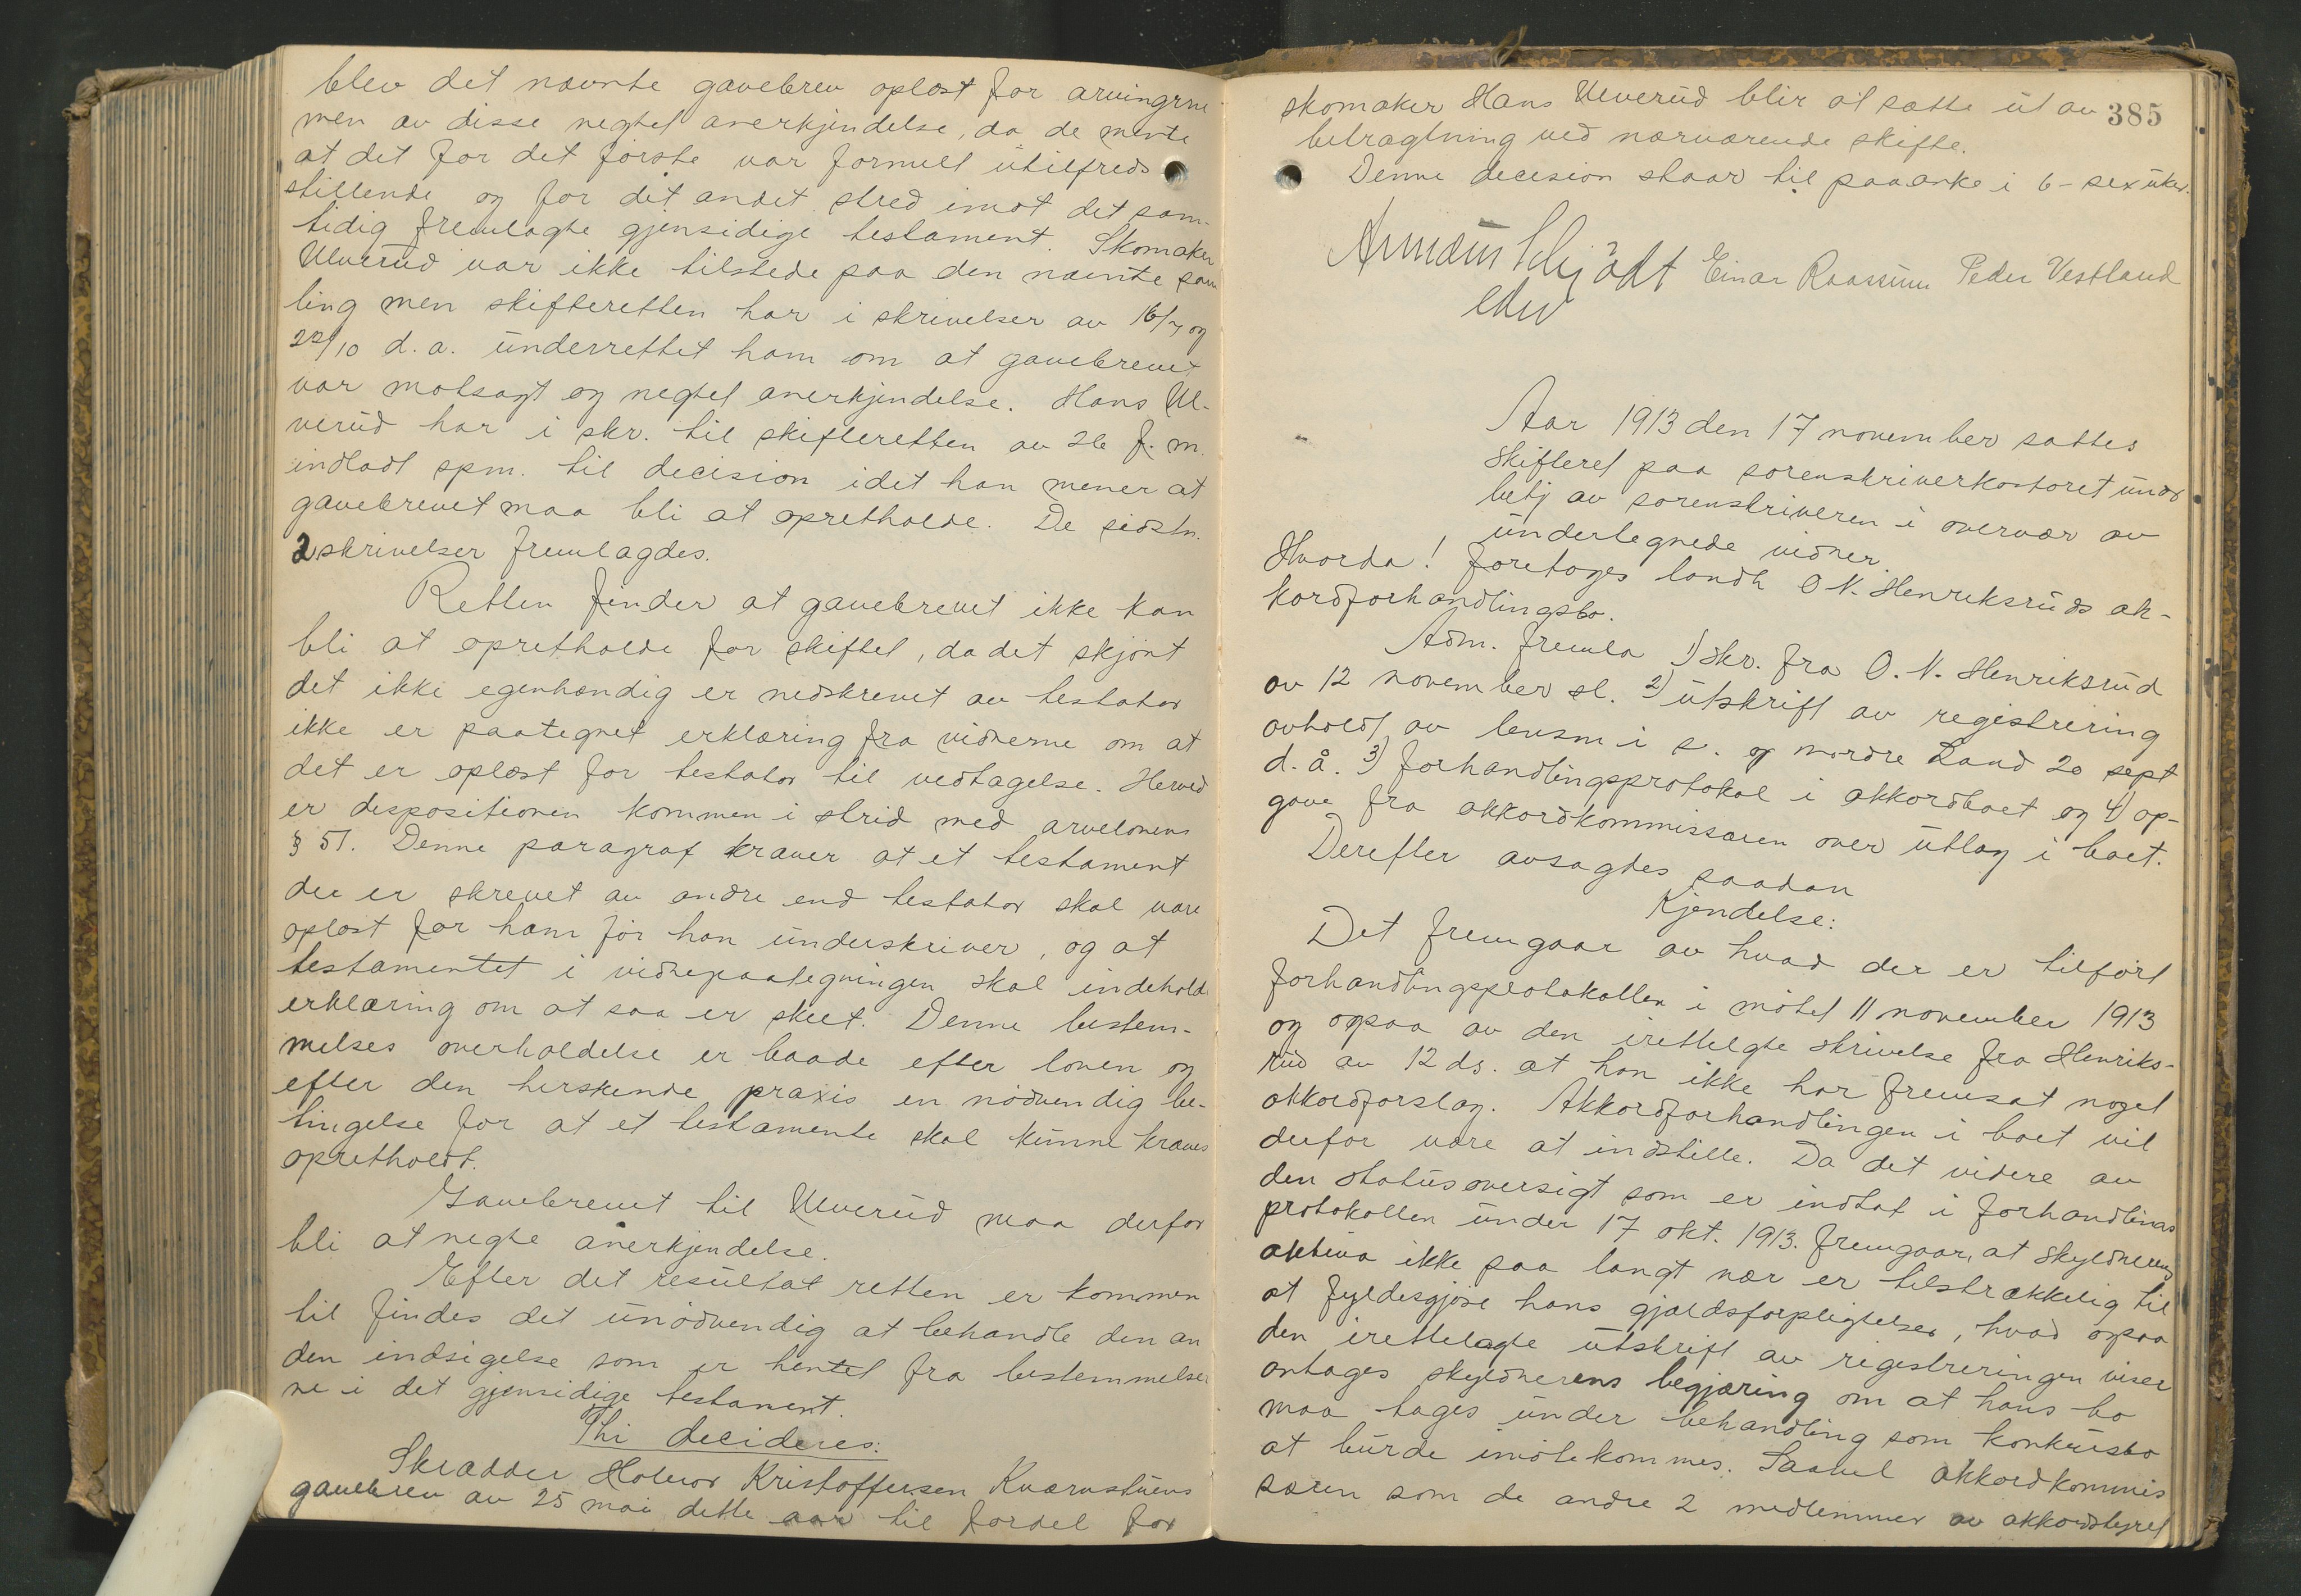 blev det nævnte gavebrev oplæst for arvingerne
men av disse negtet anerkjendelse, da de mente
at det for det første var formelt utilfreds
stillende og for det andet stred imot det sam-
tidig fremlagte gjensidige testament. Skomaker
Ulverud var ikke tilstede paa den nævnte sam
ling men skifteretten har i skrivelser av 16/7 og
22/10 d.a. underrettet ham om at gavebrevet
var motsagt og negtet anerkjendelse. Hans Ul-
verud har i skr. til skifteretten av 26 f.m.
indladt spm. til decision idet han mener at
gavebrevet maa bli at opretholde. De sidstn.
2 skrivelser fremlagdes.
Retten finder at gavebrevet ikke kan
bli at opretholde for skiftet, da det skjønt
det ikke egenhændig er nedskrevet av testator
ikke er paategnet erklæring fra vidnerne om at
det er oplæst for testator til vedtagelse. Herved
er dispositionen kommen i strid med arvelovens
§ 51. Denne paragraf kræver at et testament
der er skrevet av andre end testator skal være
oplæst for ham før han underskriver, og at
testamentet i vidnepaategningen skal indeholde
erklæring om at saa er skeet. Denne bestem-
melses overholdelse er baade efter loven og
efter den herskende praxis en nødvendig be-
tingelse for at et testamente skal kunne kræves
opretholdt.
Gavebrevet til Ulverud maa derfor
bli at negte anerkjendelse.
Efter det resultat retten er kommen
til findes det unødvendig at behandle den an
den indsigelse som er hentet fra bestemmelser
ne i det gjensidige testament.
Thi decideres:
Skrædder Halvor Kristoffersen Kværnstuens
gavebrev av 25 mai dette aar til fordel for
385
skomaker Hans Ulverud blir at sætte ut av
betragtning ved nærværende skifte.
Denne decision staar til paaanke i 6 - sex uker.
Schjødt Einar Raassum Peder Vestland
edv
Aar 1913 den 17 november sattes
skifteret paa sorenskriverkontoret under
betj av sorenskriveren i overvær av
undertegnede vidner.
Hvorda! foretoges landh O N. Henriksruds ak-
kordforhandlingsbo.
Adm. fremla 1) skr. fra O. N. Henriksrud
av 12 november sl. 2) utskrift av registrering
avholdt av lensm i s. og nordre Land 20 sept
d.å. 3) forhandlingsprotokol i akkordboet og 4) op-
gave fra akkordkommissæren over utlæg i boet.
Derefter avsagdes saadan
Kjendelse:
Det fremgaar av hvad der er tilført
forhandlingsprotokollen i møtet 11 november 1913
og ogsaa av den irettelagte skrivelse fra Henriks-
rud av 12 ds. at han ikke har fremsat noget
akkordforslag. Akkordforhandlingen i boet vil
derfor være at indstille. Da det videre av
den statusoversigt som er indtat i forhandlings
protokollen under 17 okt. 1913. fremgaar, at skyldnerens
aktiva ikke paa langt nær er tilstrækkelig til
at fyldesgjøre hans gjældsforpligtelser, hvad ogsaa
den irettelagte utskrift av registreringen viser
antages skyldnerens begjæring om at hans bo
maa tages under behandling som konkursbo
at burde imøtekommes. Saavel akkordkommis
særen som de andre 2 medlemmer av akkordstyret